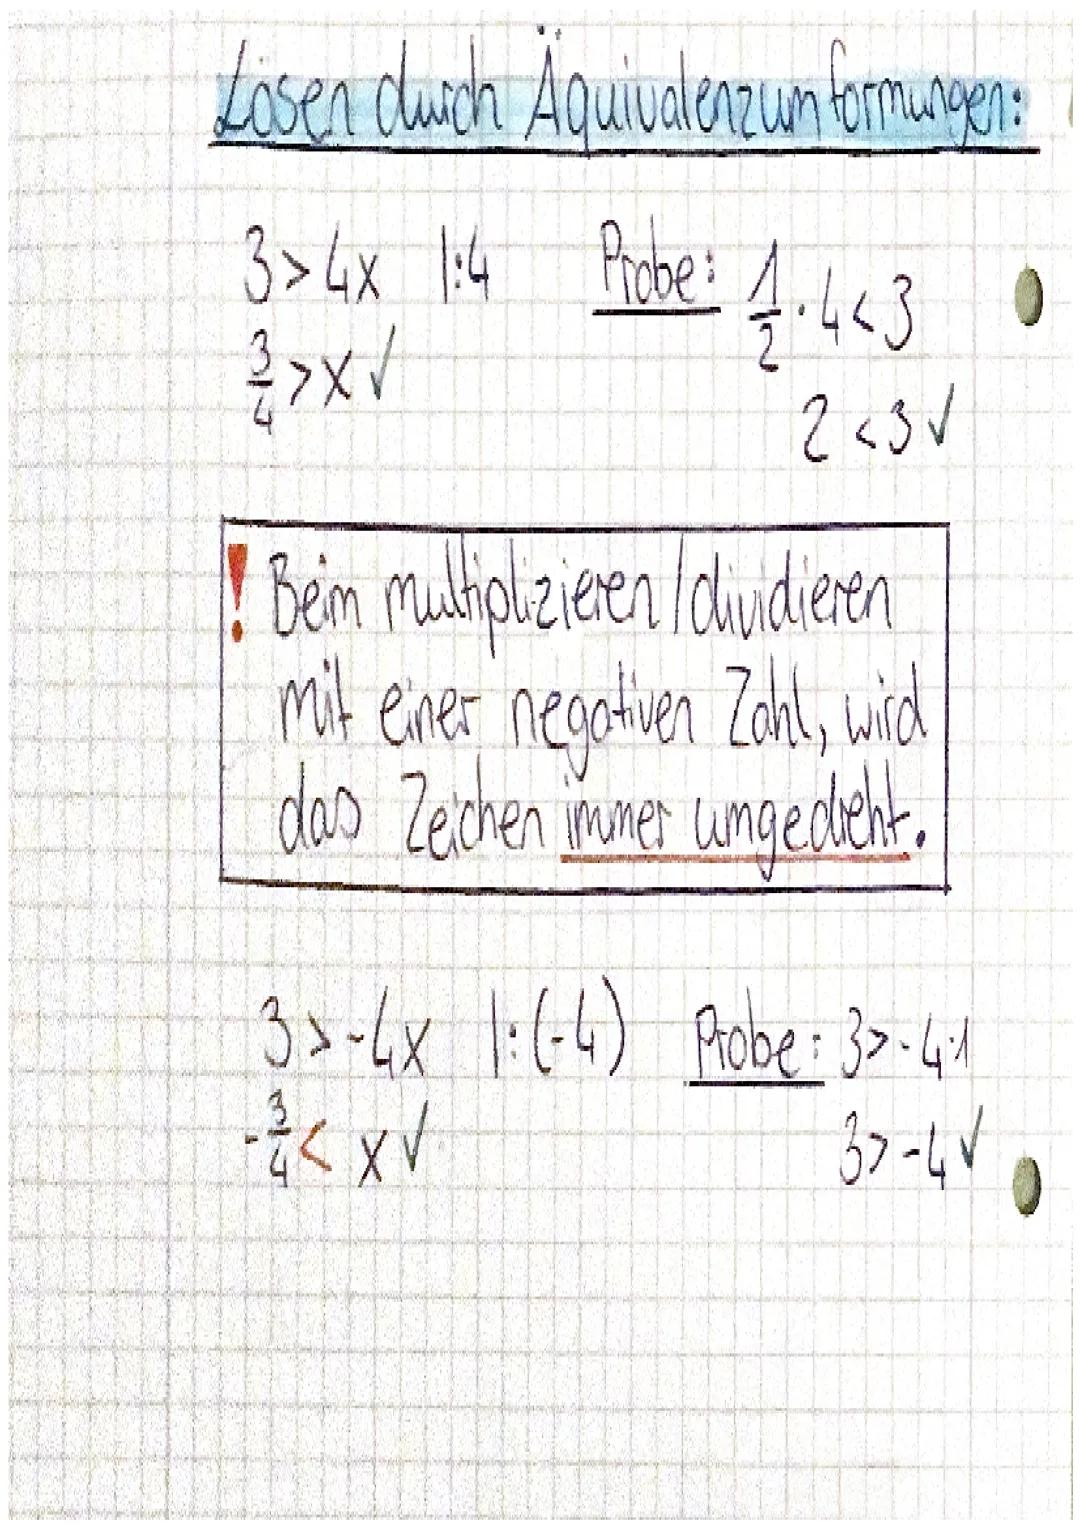 Lösen durch Äquivalenzumformungen:
3 > 4x |:4 Probe: 1/2 · 4 < 3
3/4 > x ✓
2 < 3 ✓
! Beim multiplizieren/dividieren
mit einer negativen Zahl, wird
das Zeichen immer umgedreht.
3 > -4x |:(-4) Probe: 3 > -4·1
-3/4 < x ✓ 3 > -4 ✓